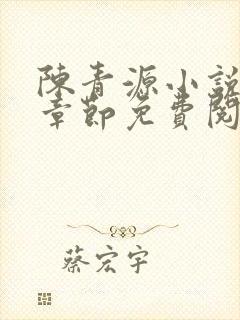 陳青源小說
章節免費閱
蔡宏宇